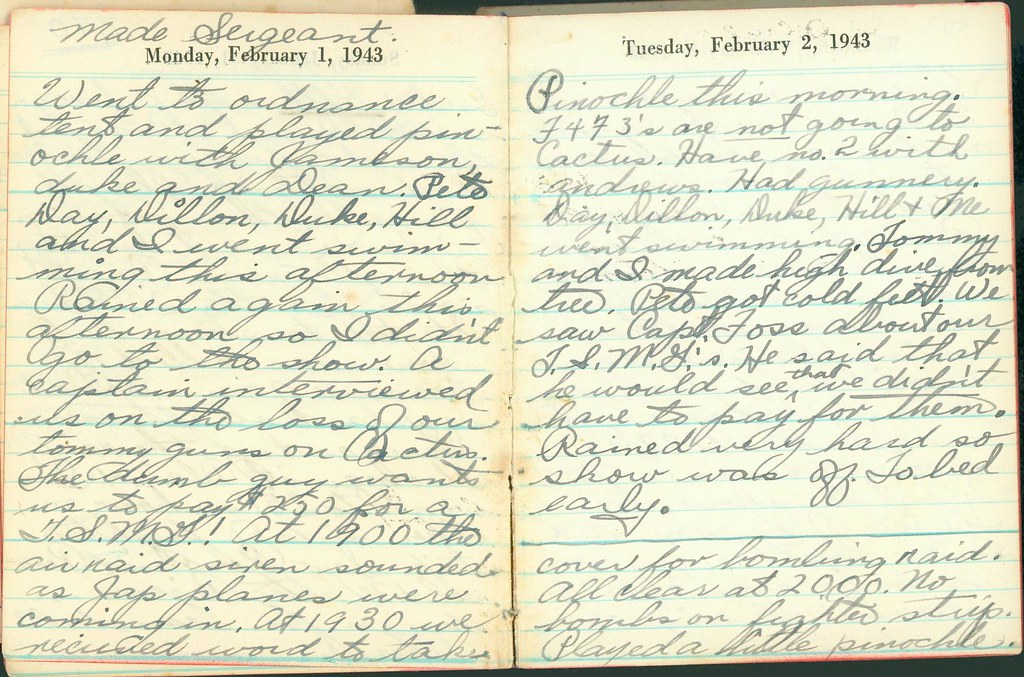 made Sergeant.
Monday, February 1, 1943
Went to ordnance
tent and played pin-
ochle with Jameson,
duke and Dean. Pete
Day, Dillon, Duke, Hill
and I went swim-
ming this afternoon
Rained again this
afternoon so I didn't
go to the show. A
captain interviewed
us on the loss of our
tommy guns on Cactus.
The dumb guy wants
us to pay $250 for a
T.S.M.G.! At 1900 the
air raid siren sounded
as Jap planes were
coming in. At 1930 we
recieved word to take
Tuesday, February 2, 1943
Pinochle this morning.
F4F3's are not going to
Cactus. Have no. 2 with
andrews. Had gunnery.
Day, Dillon, Duke, Hill & Me
went swimming. Tommy
and I made high dive from
tree. Pete got cold feet. We
saw Capt. Foss about our
T.S.M.G.'s. He said that
he would see that we didn't
have to pay for them.
Rained very hard so
show was off. To bed
early.
cover for bombing raid.
All clear at 2000. No
bombs on fighter strip.
Played a little pinochle.